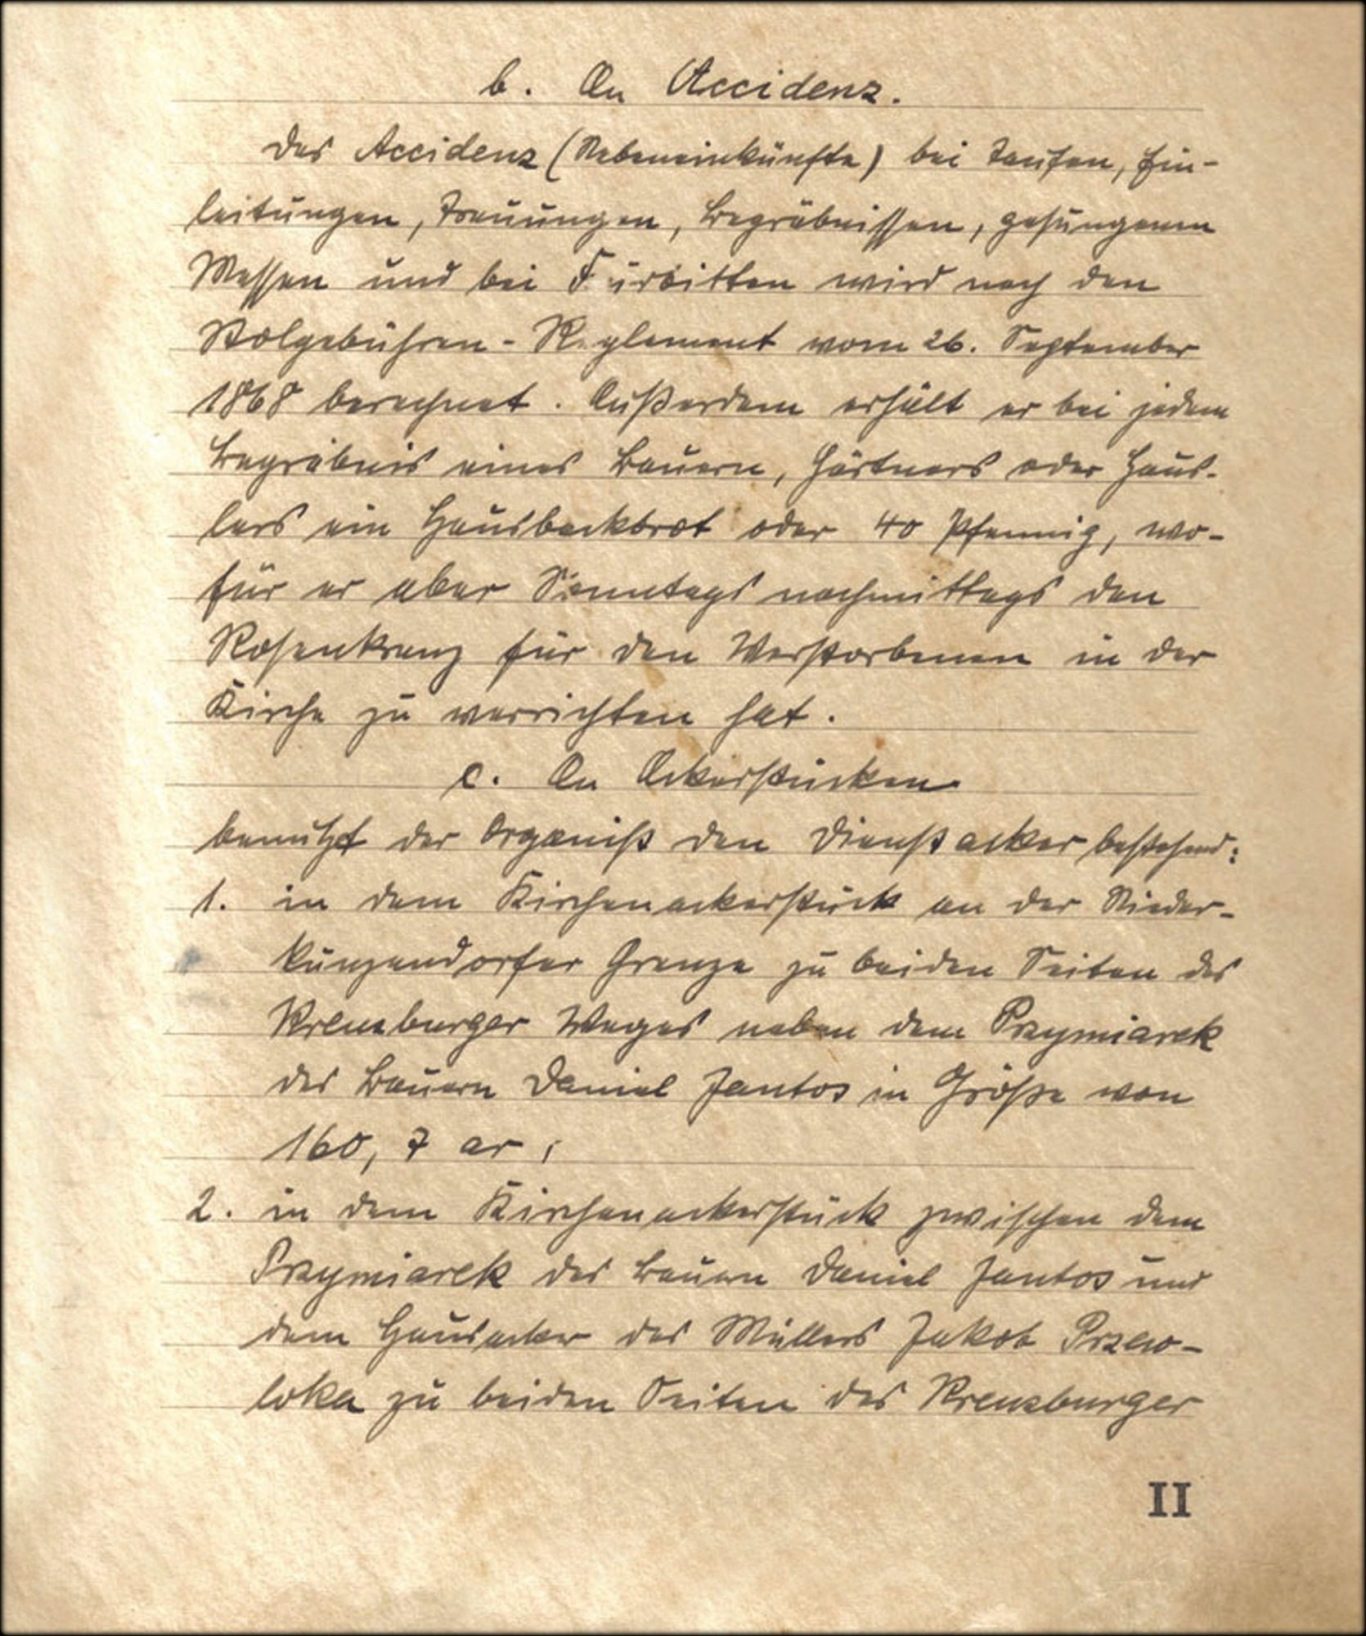 b. An Accidenz.
Das Accidenz (Nebeneinkünfte) bei Taufen, Ein-
leitungen, Trauungen, Begräbnissen, gesungenen
Messen und bei Fürbitten wird nach den
Stolgebühren-Reglement vom 26. September
1868 berechnet. Außerdem erhält er bei jedem
Begräbnis eines Bauern, Gärtners oder Häus-
lers ein Hausbackbrot oder 40 Pfennig, wo-
für er aber Sonntags nachmittags den
Rosenkranz für den Verstorbenen in der
Kirche zu verrichten hat.
c. An Ackerstücken
benutzt der Organist den Dienstacker bestehend:
1. in dem Kirchenackerstück an der Nieder-
kunzendorfer Grenze zu beiden Seiten des
Kreuzburger Weges neben dem Przymiarek
des Bauern Daniel Jantos in Größe von
160,7 ar;
2. in dem Kirchenackerstück zwischen dem
Przymiarek des Bauern Daniel Jantos und
dem Hausacker des Müllers Jakob Przew-
loka zu beiden Seiten des Kreuzburger
II